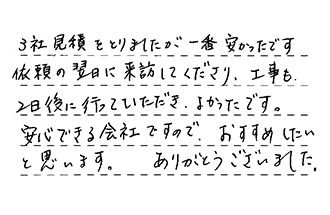 3社見積をとりましたが一番安かったです
依頼の翌日に来訪してくださり、工事も、
2日後に行っていただき、よかったです。
安心できる会社ですので、おすすめしたい
と思います。 ありがとうございました。